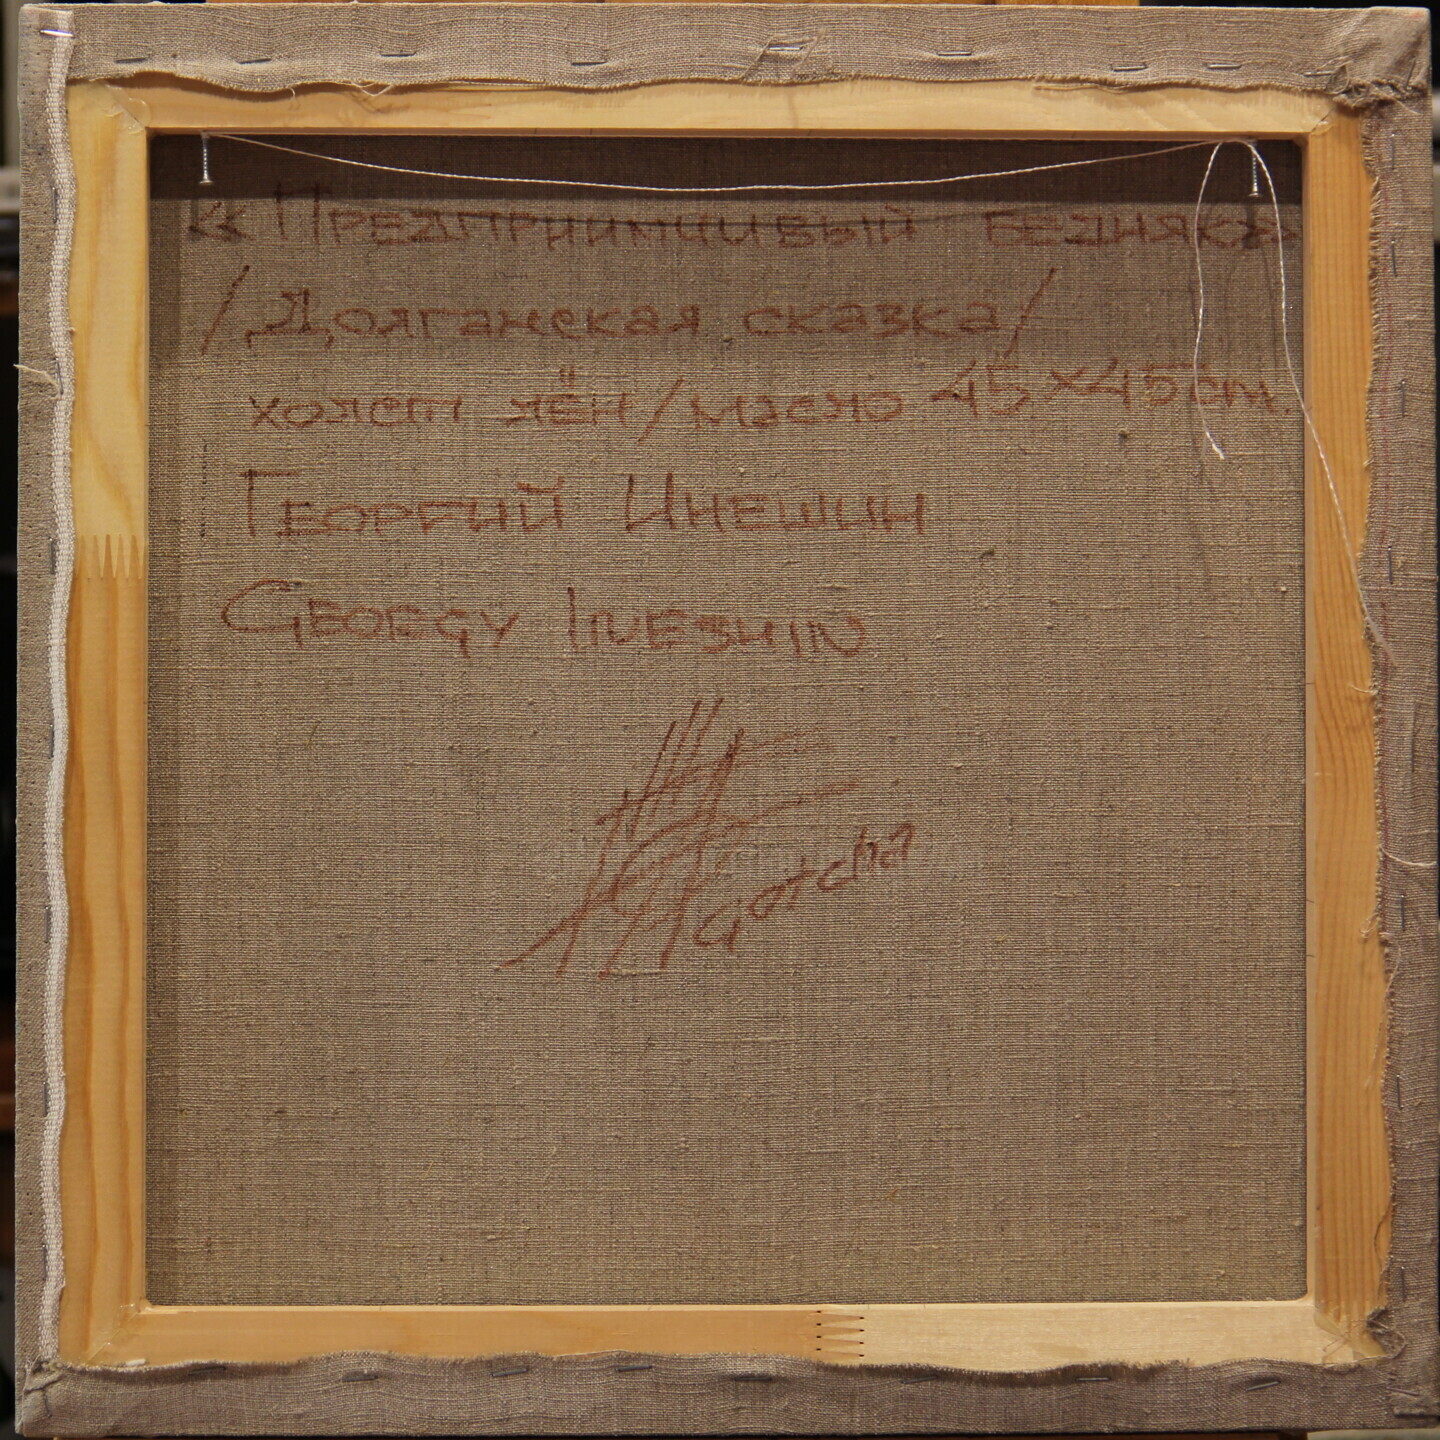 «Предприимчивый бедняк»
/Долганская сказка/
холст лён/масло 45x45cm.
Георгий Инешин
Georgy Ineshin
Gotcha